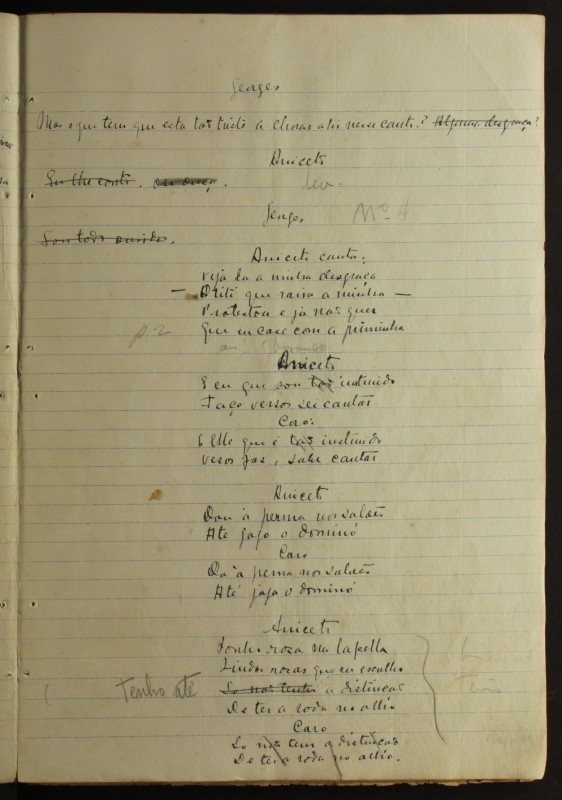 Georges
Mas o que tem que esta tão triste a chorar neste canto? Alguma desgraça?
Aniceto
Eu lhe conto. ou ouça.
Georges Nº 4
Sou todo ouvidos.
Aniceto canta:
Veja la a minha desgraça
— que raiva a minha —
Protestou e já não quer
p 2 Que eu case com a priminha
Aniceto
E eu que sou tão instruido
Faço versos sei cantar
Coro:
E elle que é tão instruido
versos faz, sabe cantar
Aniceto
Dou à perna nos salões
Até jogo o dominó
Coro
Dá à perna nos salões
Até joga o dominó
Aniceto
Ponho rosa na lapella
Lindas rosas que eu escolho
Tenho até Só não tenho a distinção
De ter a roda no olho
Coro
Só não tem a distincção
De ter a roda no olho.